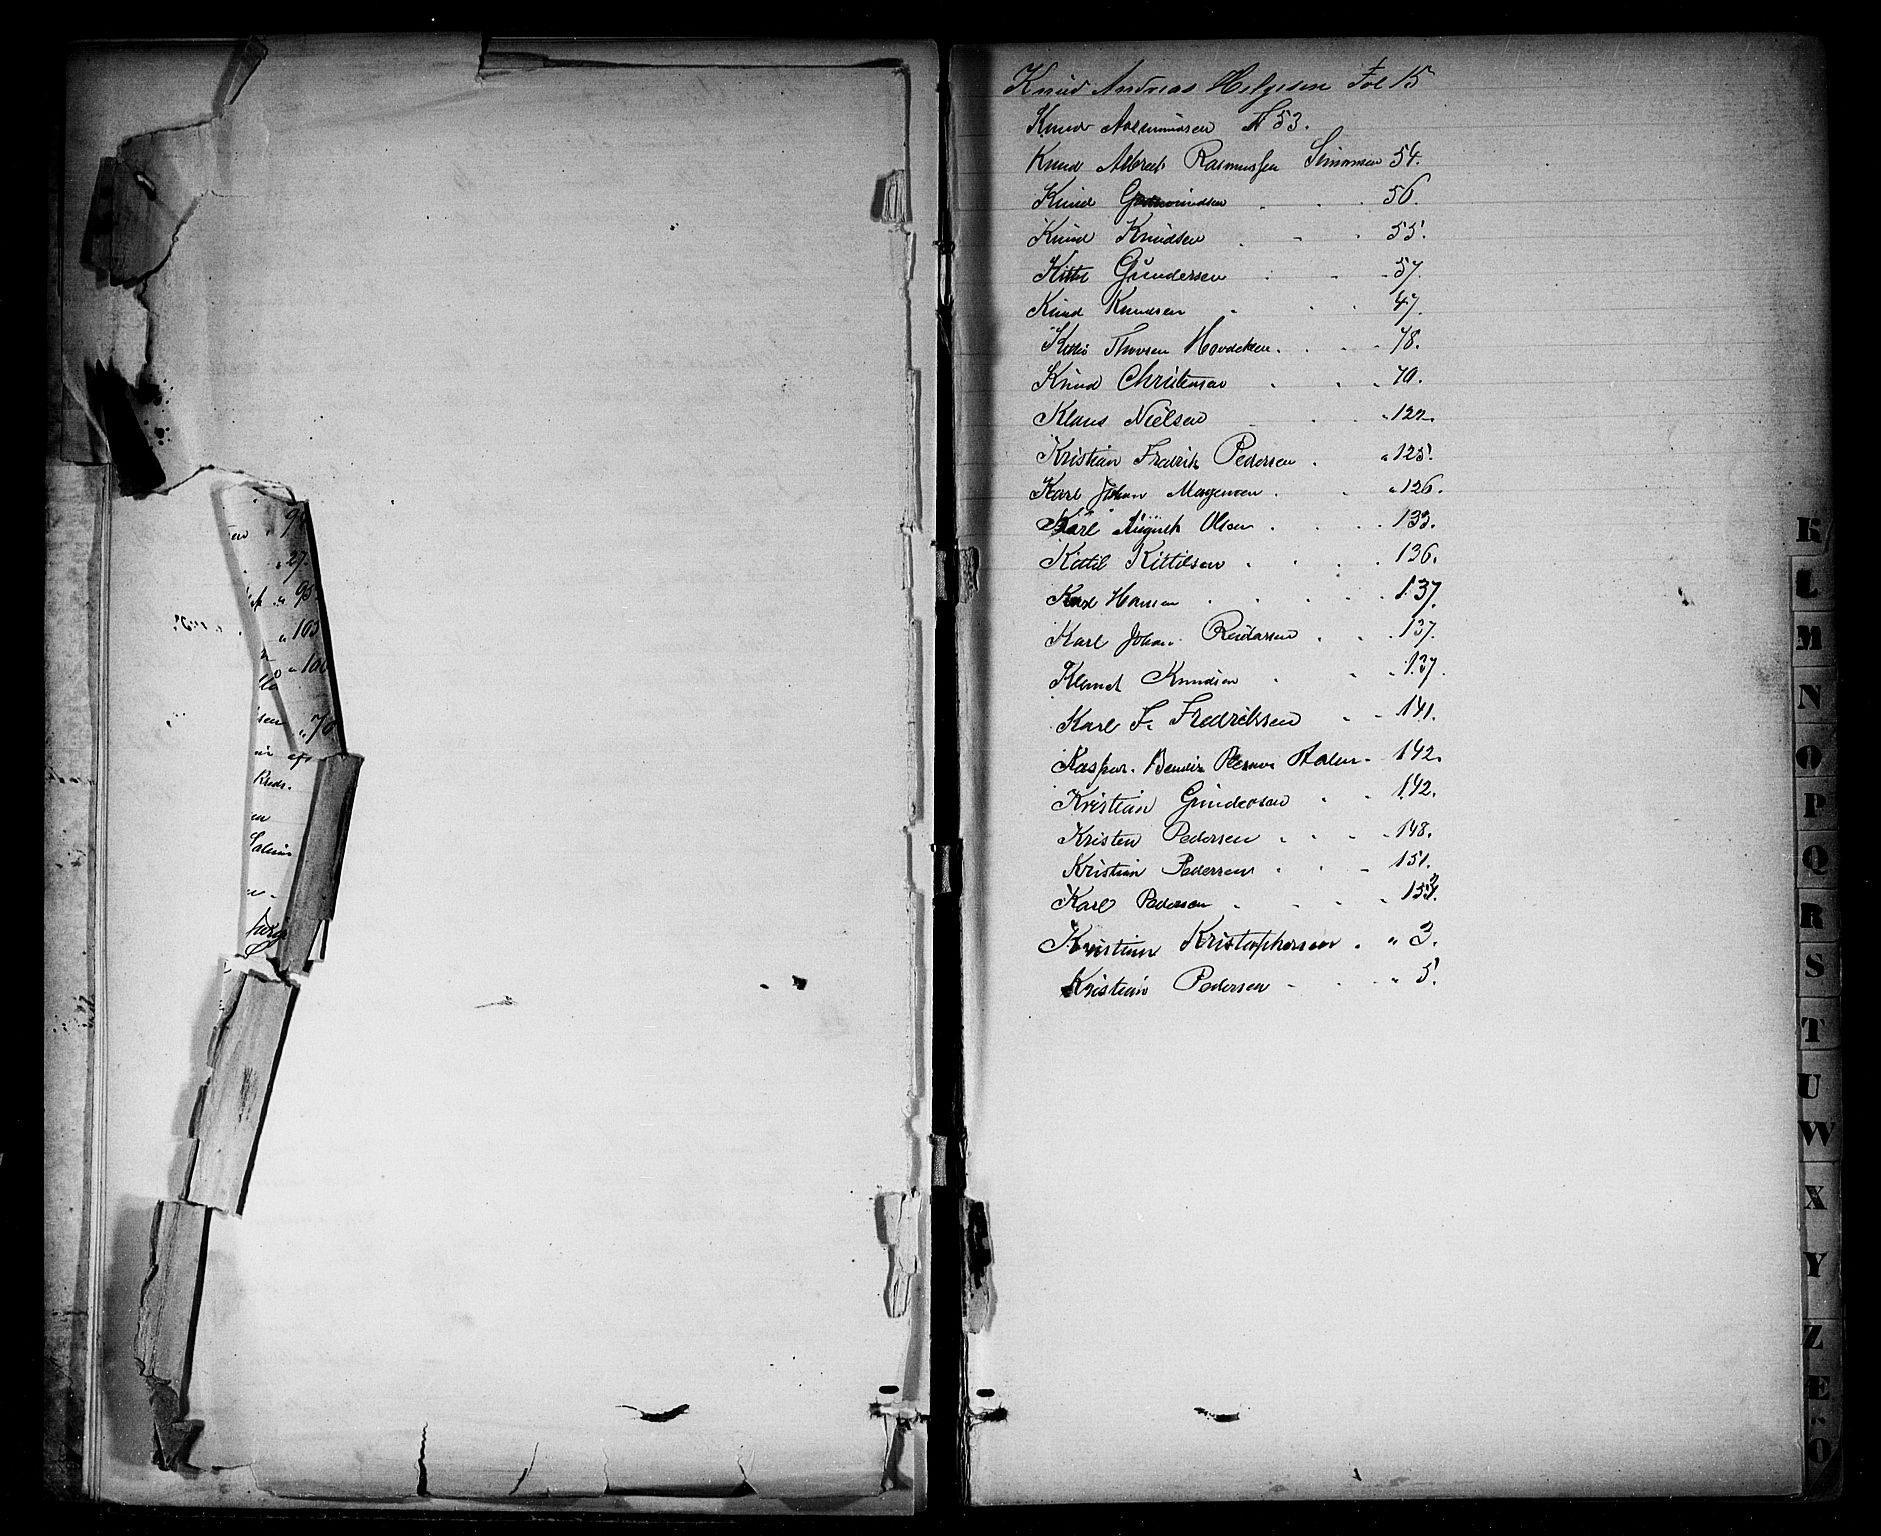 94
27.
" 95.
" 103
" 100
sen " 70
Knud Andreas Helgesen Fol 15
Knud Aasmundsen N 53.
Knud Albrecht Rasmussen Simonsen 54.
Knud 56.
Knud Knudsen 55.
Kittil Gundersen 57.
Knud Knudsen 47.
Thorsen 78.
Knud Christensen 70.
Klaus Nielsen " 122.
Kristian Fredrik Pedersen " 125.
Karl Johan " 126.
Karl August Olsen 133.
Kittil Kittilsen 136.
Karl Hansen 137.
Karl Johan 137.
Knudsen 137.
Karl F. Fredriksen 141.
Kaspar 142.
Kristian Gundersen 142.
Kristen Pedersen 148.
Kristian Pedersen 151.
Karl Pedersen
Kristian Kristophersen " 3.
Kristian Pedersen " 5.
K
L
M
N
O
P
Q
R
S
T
U
W
X
Y
Z
Æ
Ö